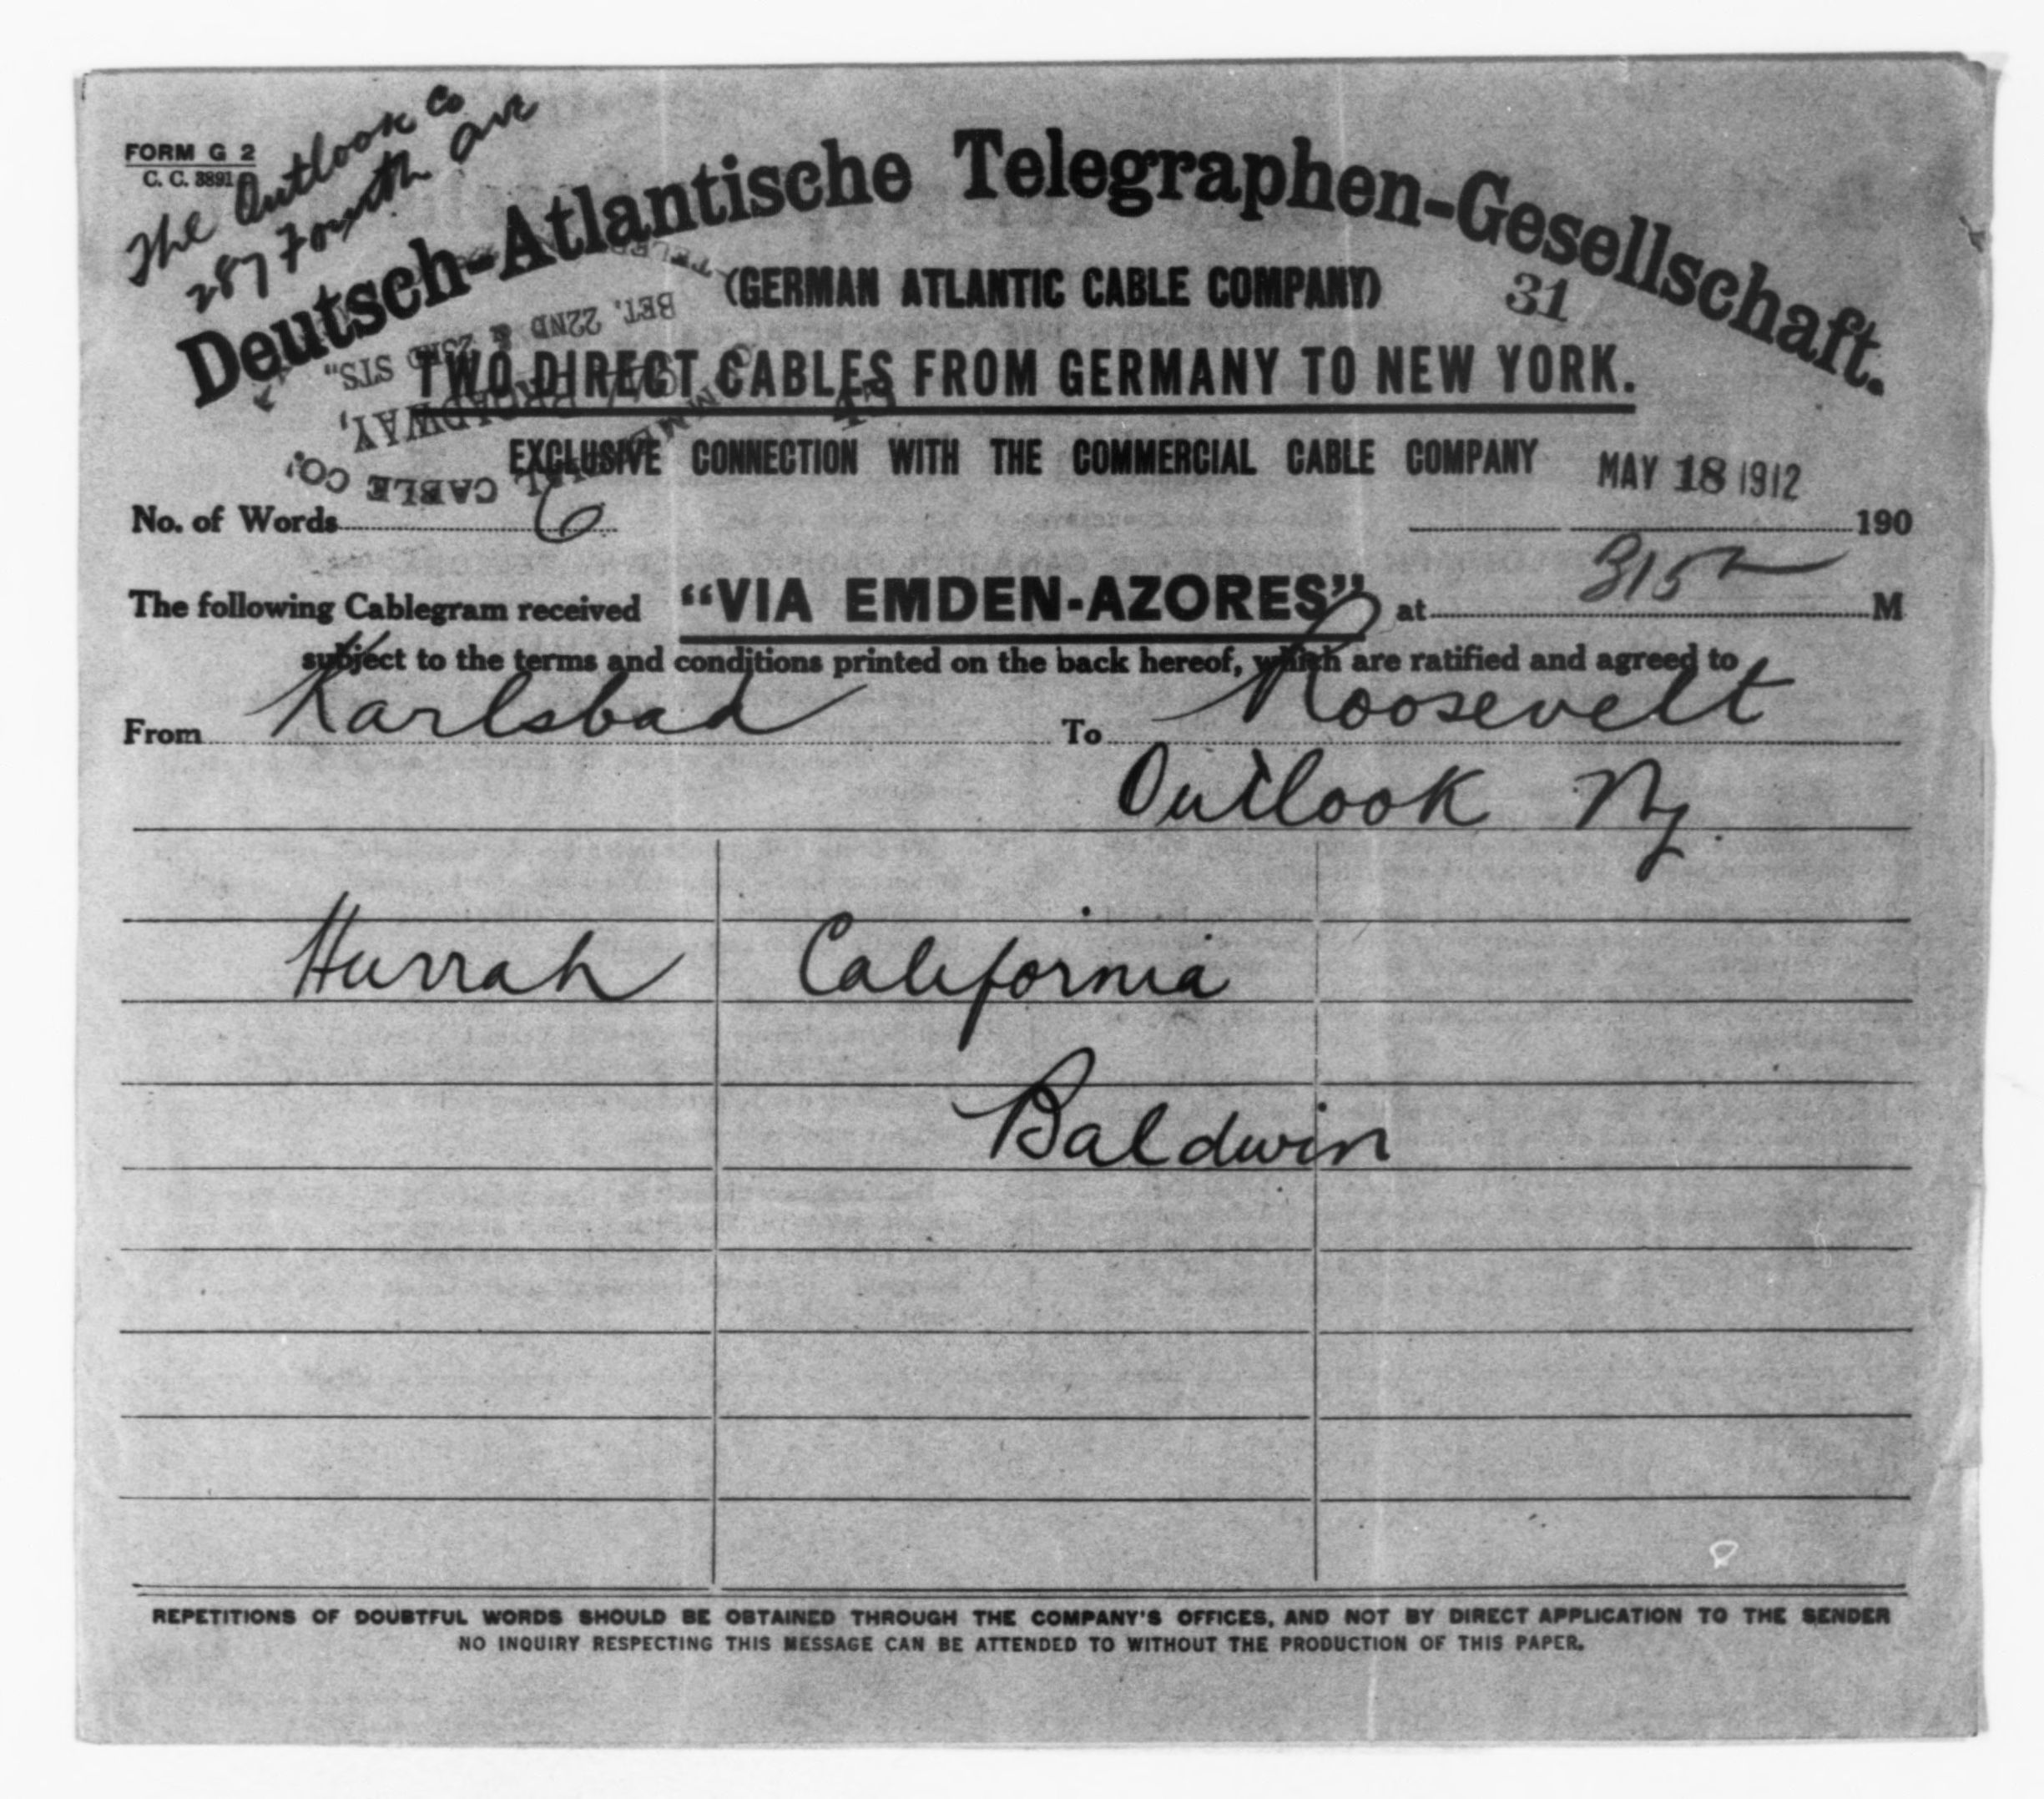 The Outlook Co
287 Fourth Ave
FORM G 2
C. C. 3891
Deutsch-Atlantische Telegraphen-Gesellschaft.
(GERMAN ATLANTIC CABLE COMPANY)
31
TWO DIRECT CABLES FROM GERMANY TO NEW YORK.
EXCLUSIVE CONNECTION WITH THE COMMERCIAL CABLE COMPANY
COMMERCIAL CABLE CO.,
BROADWAY,
BET. 22ND & 23RD STS.
MAY 18 1912
No. of Words 6 190
The following Cablegram received "VIA EMDEN-AZORES" at 315 M
subject to the terms and conditions printed on the back hereof, which are ratified and agreed to
From Karlsbad To Roosevelt
Outlook Ny.
Hurrah California
Baldwin
REPETITIONS OF DOUBTFUL WORDS SHOULD BE OBTAINED THROUGH THE COMPANY'S OFFICES, AND NOT BY DIRECT APPLICATION TO THE SENDER
NO INQUIRY RESPECTING THIS MESSAGE CAN BE ATTENDED TO WITHOUT THE PRODUCTION OF THIS PAPER.